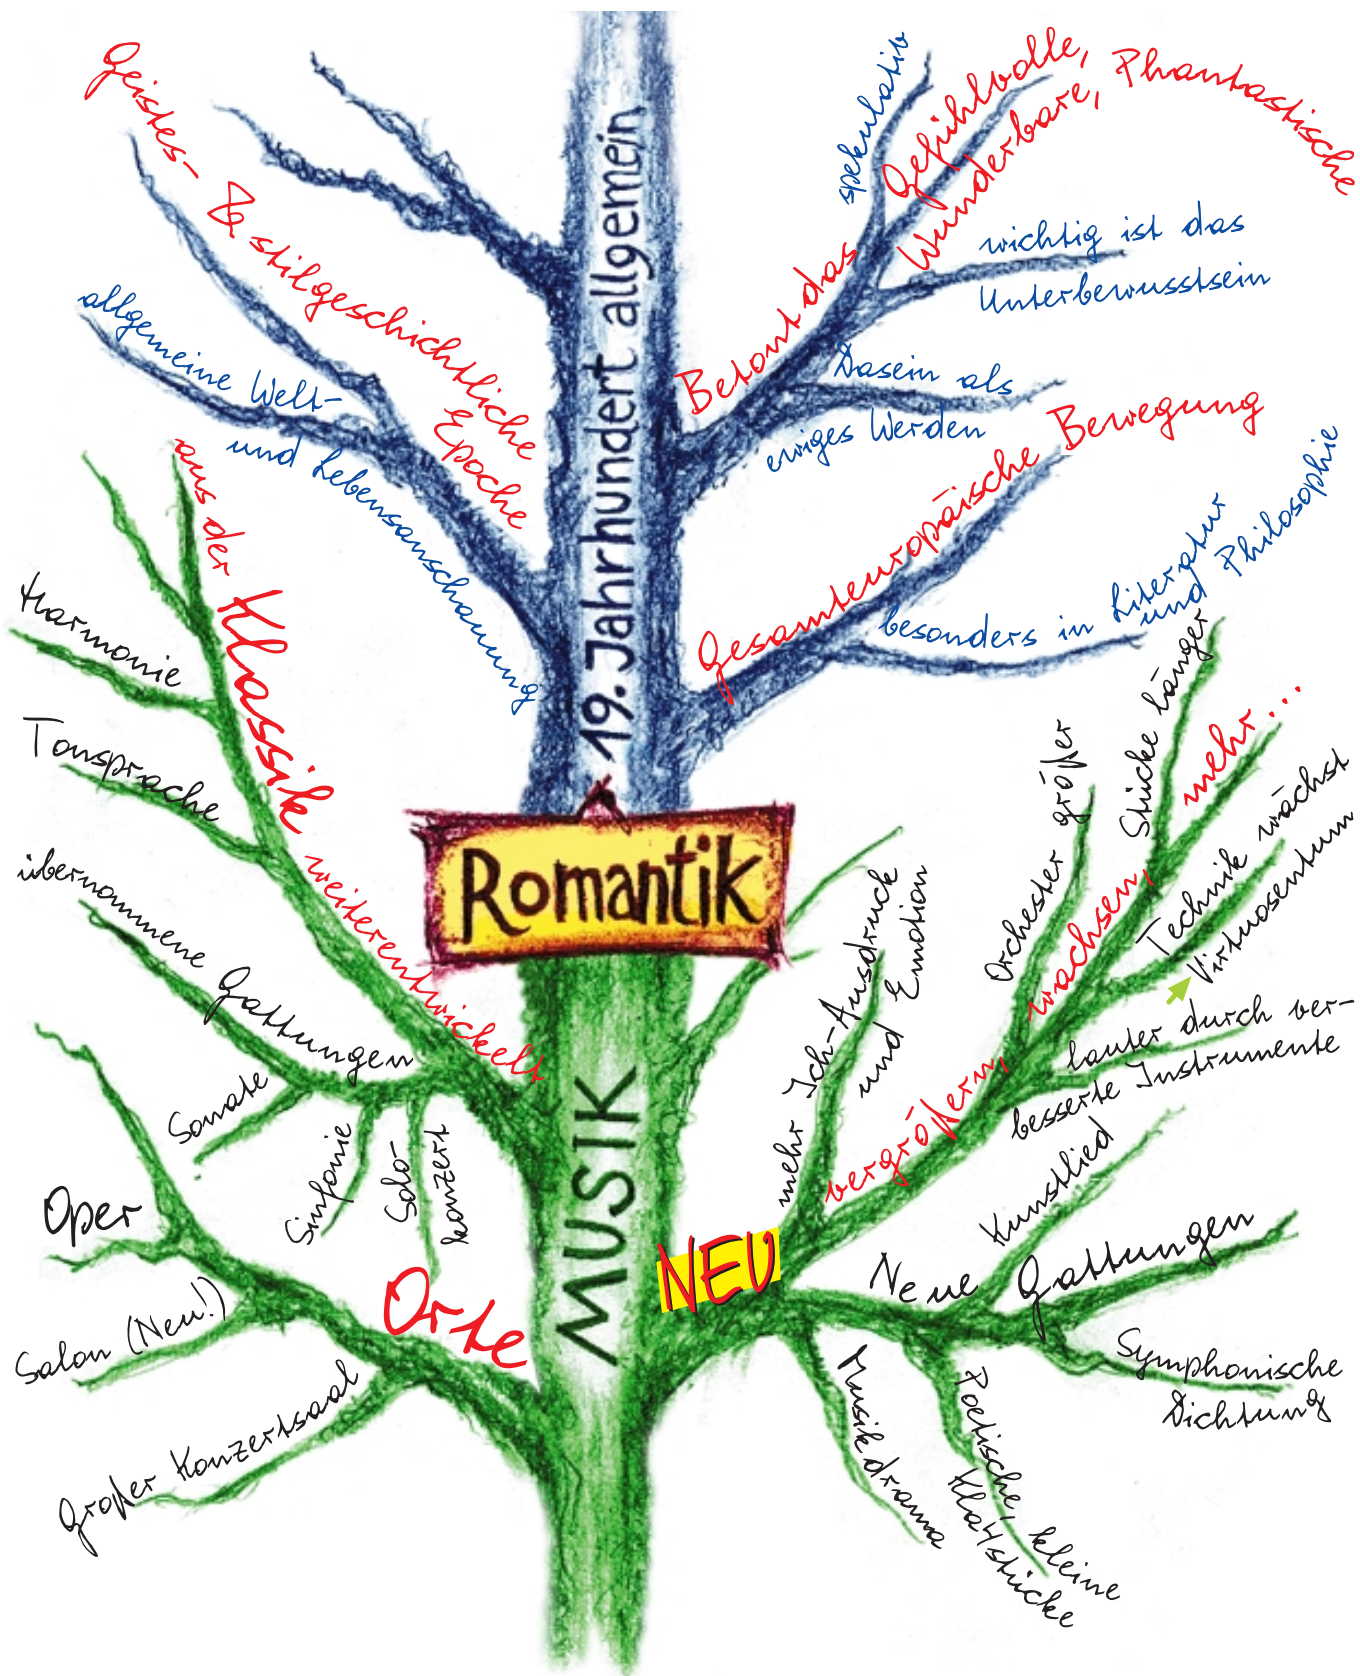 Geistes- & stilgeschichtliche
Epoche
allgemeine Welt-
und Lebensanschauung
19. Jahrhundert allgemein
spekulativ
Betont das Gefühlvolle,
Wunderbare, Phantastische
wichtig ist das
Unterbewusstsein
Dasein als
ewiges Werden
Gesamteuropäische Bewegung
besonders in Literatur
und Philosophie
Romantik
MUSIK
aus der Klassik weiterentwickelt
Harmonie
Tonsprache
übernommene Gattungen
Sonate
Sinfonie
Solo-
konzert
Orte
Oper
Salon (Neu!)
großer Konzertsaal
NEU
mehr Ich-Ausdruck
und Emotion
vergrößern, wachsen, mehr...
Orchester größer
Stücke länger
Technik wächst
Virtuosentum
lauter durch ver-
besserte Instrumente
Neue Gattungen
Kunstlied
Symphonische
Dichtung
Poetische, kleine
Kla4stücke
Musikdrama